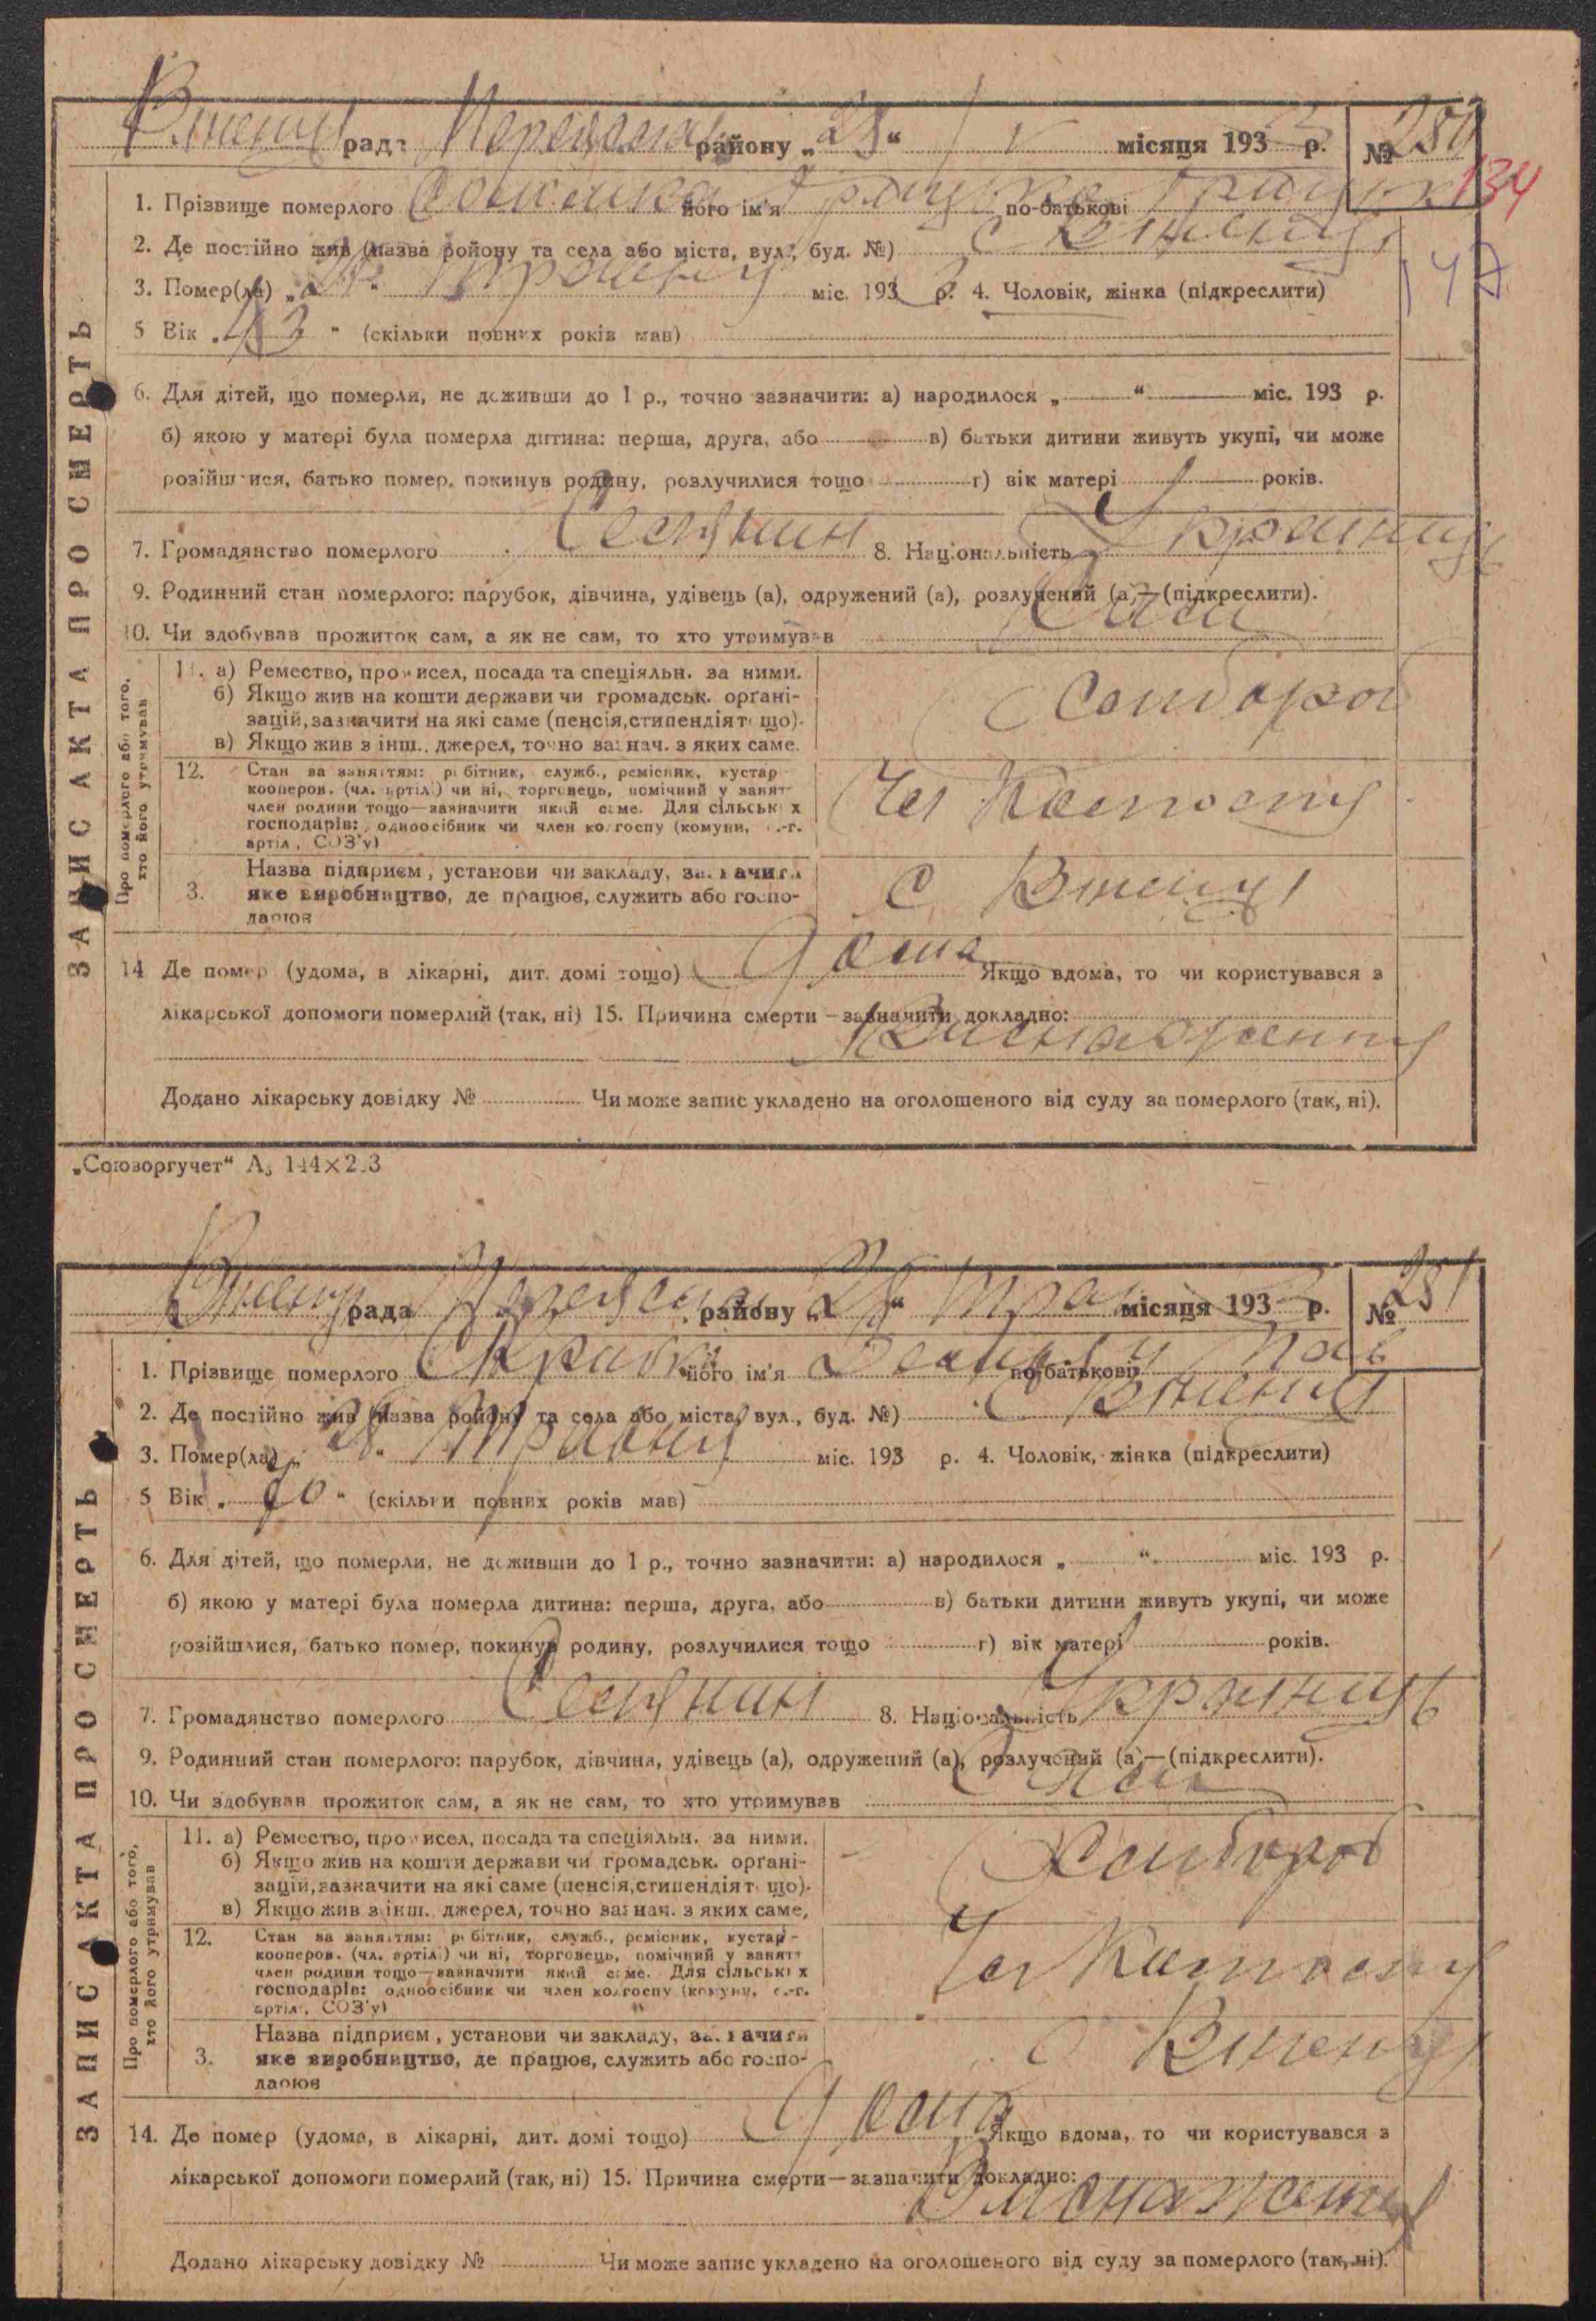 рада району „28“ V місяця 1933 р. № 280
134
1. Прізвище померлого його ім'я по-батькові
2. Де постійно жив (назва ройону та села або міста, вул., буд. №) с
147
3. Помер(ла) „28“ травня міс. 1933 р. 4. Чоловік, жінка (підкреслити)
5 Вік „43“ (скільки повних років мав)
6. Для дітей, що померли, не доживши до 1 р., точно зазначити: а) народилося „ “ міс. 193 р.
б) якою у матері була померла дитина: перша, друга, або в) батьки дитини живуть укупі, чи може
розійшлися, батько помер, покинув родину, розлучилися тощо г) вік матері років.
7. Громадянство померлого Селянин 8. Національність Українець
9. Родинний стан померлого: парубок, дівчина, удівець (а), одружений (а), розлучений (а)—(підкреслити).
10. Чи здобував прожиток сам, а як не сам, то хто утримував Сам
ЗАПИС АКТА ПРО СМЕРТЬ
Про померлого або того,
хто його утримував
11. а) Ремество, промисел, посада та спеціяльн. за ними.
б) Якщо жив на кошти держави чи громадськ. орґані-
зацій, зазначити на які саме (пенсія, стипендія т що).
в) Якщо жив з інш., джерел, точно зазнач. з яких саме.
Хлібороб
12. Стан за заняттям: робітник, служб., ремісник, кустар
кооперов. (чл. артілі) чи ні, торговець, помічний у занят
член родини тощо—зазначити який саме. Для сільських
господарів: одноосібник чи член колгоспу (комуни, с.-г.
артілі, СОЗ'у)
Чл Колгоспу
3. Назва підприєм, установи чи закладу, зазначити
яке виробництво, де працює, служить або госпо-
дарює
с
14 Де помер (удома, в лікарні, дит. домі тощо) Дома Якщо вдома, то чи користувався з
лікарської допомоги померлий (так, ні) 15. Причина смерти—зазначити докладно:
Виснаження
Додано лікарську довідку № Чи може запис укладено на оголошеного від суду за померлого (так, ні).
„Союзоргучет“ А₅ 144×203
рада району „28“ трав місяця 1933 р. № 281
1. Прізвище померлого його ім'я по-батькові Пав
2. Де постійно жив (назва ройону та села або міста, вул., буд. №) с
3. Помер(ла) „28“ травня міс. 193 р. 4. Чоловік, жінка (підкреслити)
5 Вік „ 0“ (скільки повних років мав)
6. Для дітей, що померли, не доживши до 1 р., точно зазначити: а) народилося „ “ міс. 193 р.
б) якою у матері була померла дитина: перша, друга, або в) батьки дитини живуть укупі, чи може
розійшлися, батько помер, покинув родину, розлучилися тощо г) вік матері років.
7. Громадянство померлого Селянин 8. Національність Українець
9. Родинний стан померлого: парубок, дівчина, удівець (а), одружений (а), розлучений (а)—(підкреслити).
10. Чи здобував прожиток сам, а як не сам, то хто утримував Сам
ЗАПИС АКТА ПРО СМЕРТЬ
Про померлого або того,
хто його утримував
11. а) Ремество, промисел, посада та спеціяльн. за ними.
б) Якщо жив на кошти держави чи громадськ. орґані-
зацій, зазначити на які саме (пенсія, стипендія т що).
в) Якщо жив з інш., джерел, точно зазнач. з яких саме,
Хлібороб
12. Стан за заняттям: робітник, служб., ремісник, кустар-
кооперов. (чл. артілі) чи ні, торговець, помічний у занятт
член родини тощо—зазначити який саме. Для сільських
господарів: одноосібник чи член колгоспу (комуни, с.-г.
артілі, СОЗ'у)
Чл Колгоспу
3. Назва підприєм, установи чи закладу, зазначити
яке виробництво, де працює, служить або госпо-
дарює
с
14. Де помер (удома, в лікарні, дит. домі тощо) Дома Якщо вдома, то чи користувався з
лікарської допомоги померлий (так, ні) 15. Причина смерти—зазначити докладно:
Виснаження
Додано лікарську довідку № Чи може запис укладено на оголошеного від суду за померлого (так, ні).